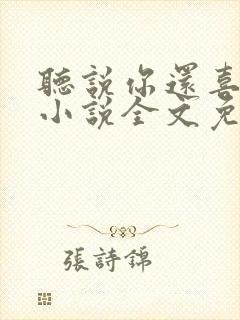 聽說你還喜
小說全文免
張詩錦